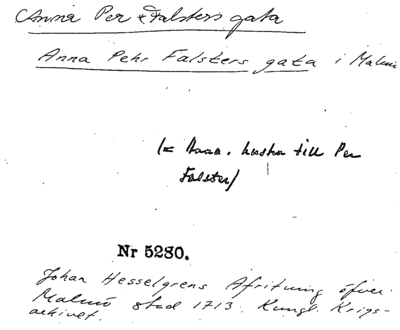 Anna Per Falsters gata
Anna Pehr Falsters gata i Malmö
(= Anna, hustru till Per
Falster)
Nr 5280.
Johan Hesselgrens Afritning öfver
Malmö stad 1713. Kungl. Krigs-
arkivet.